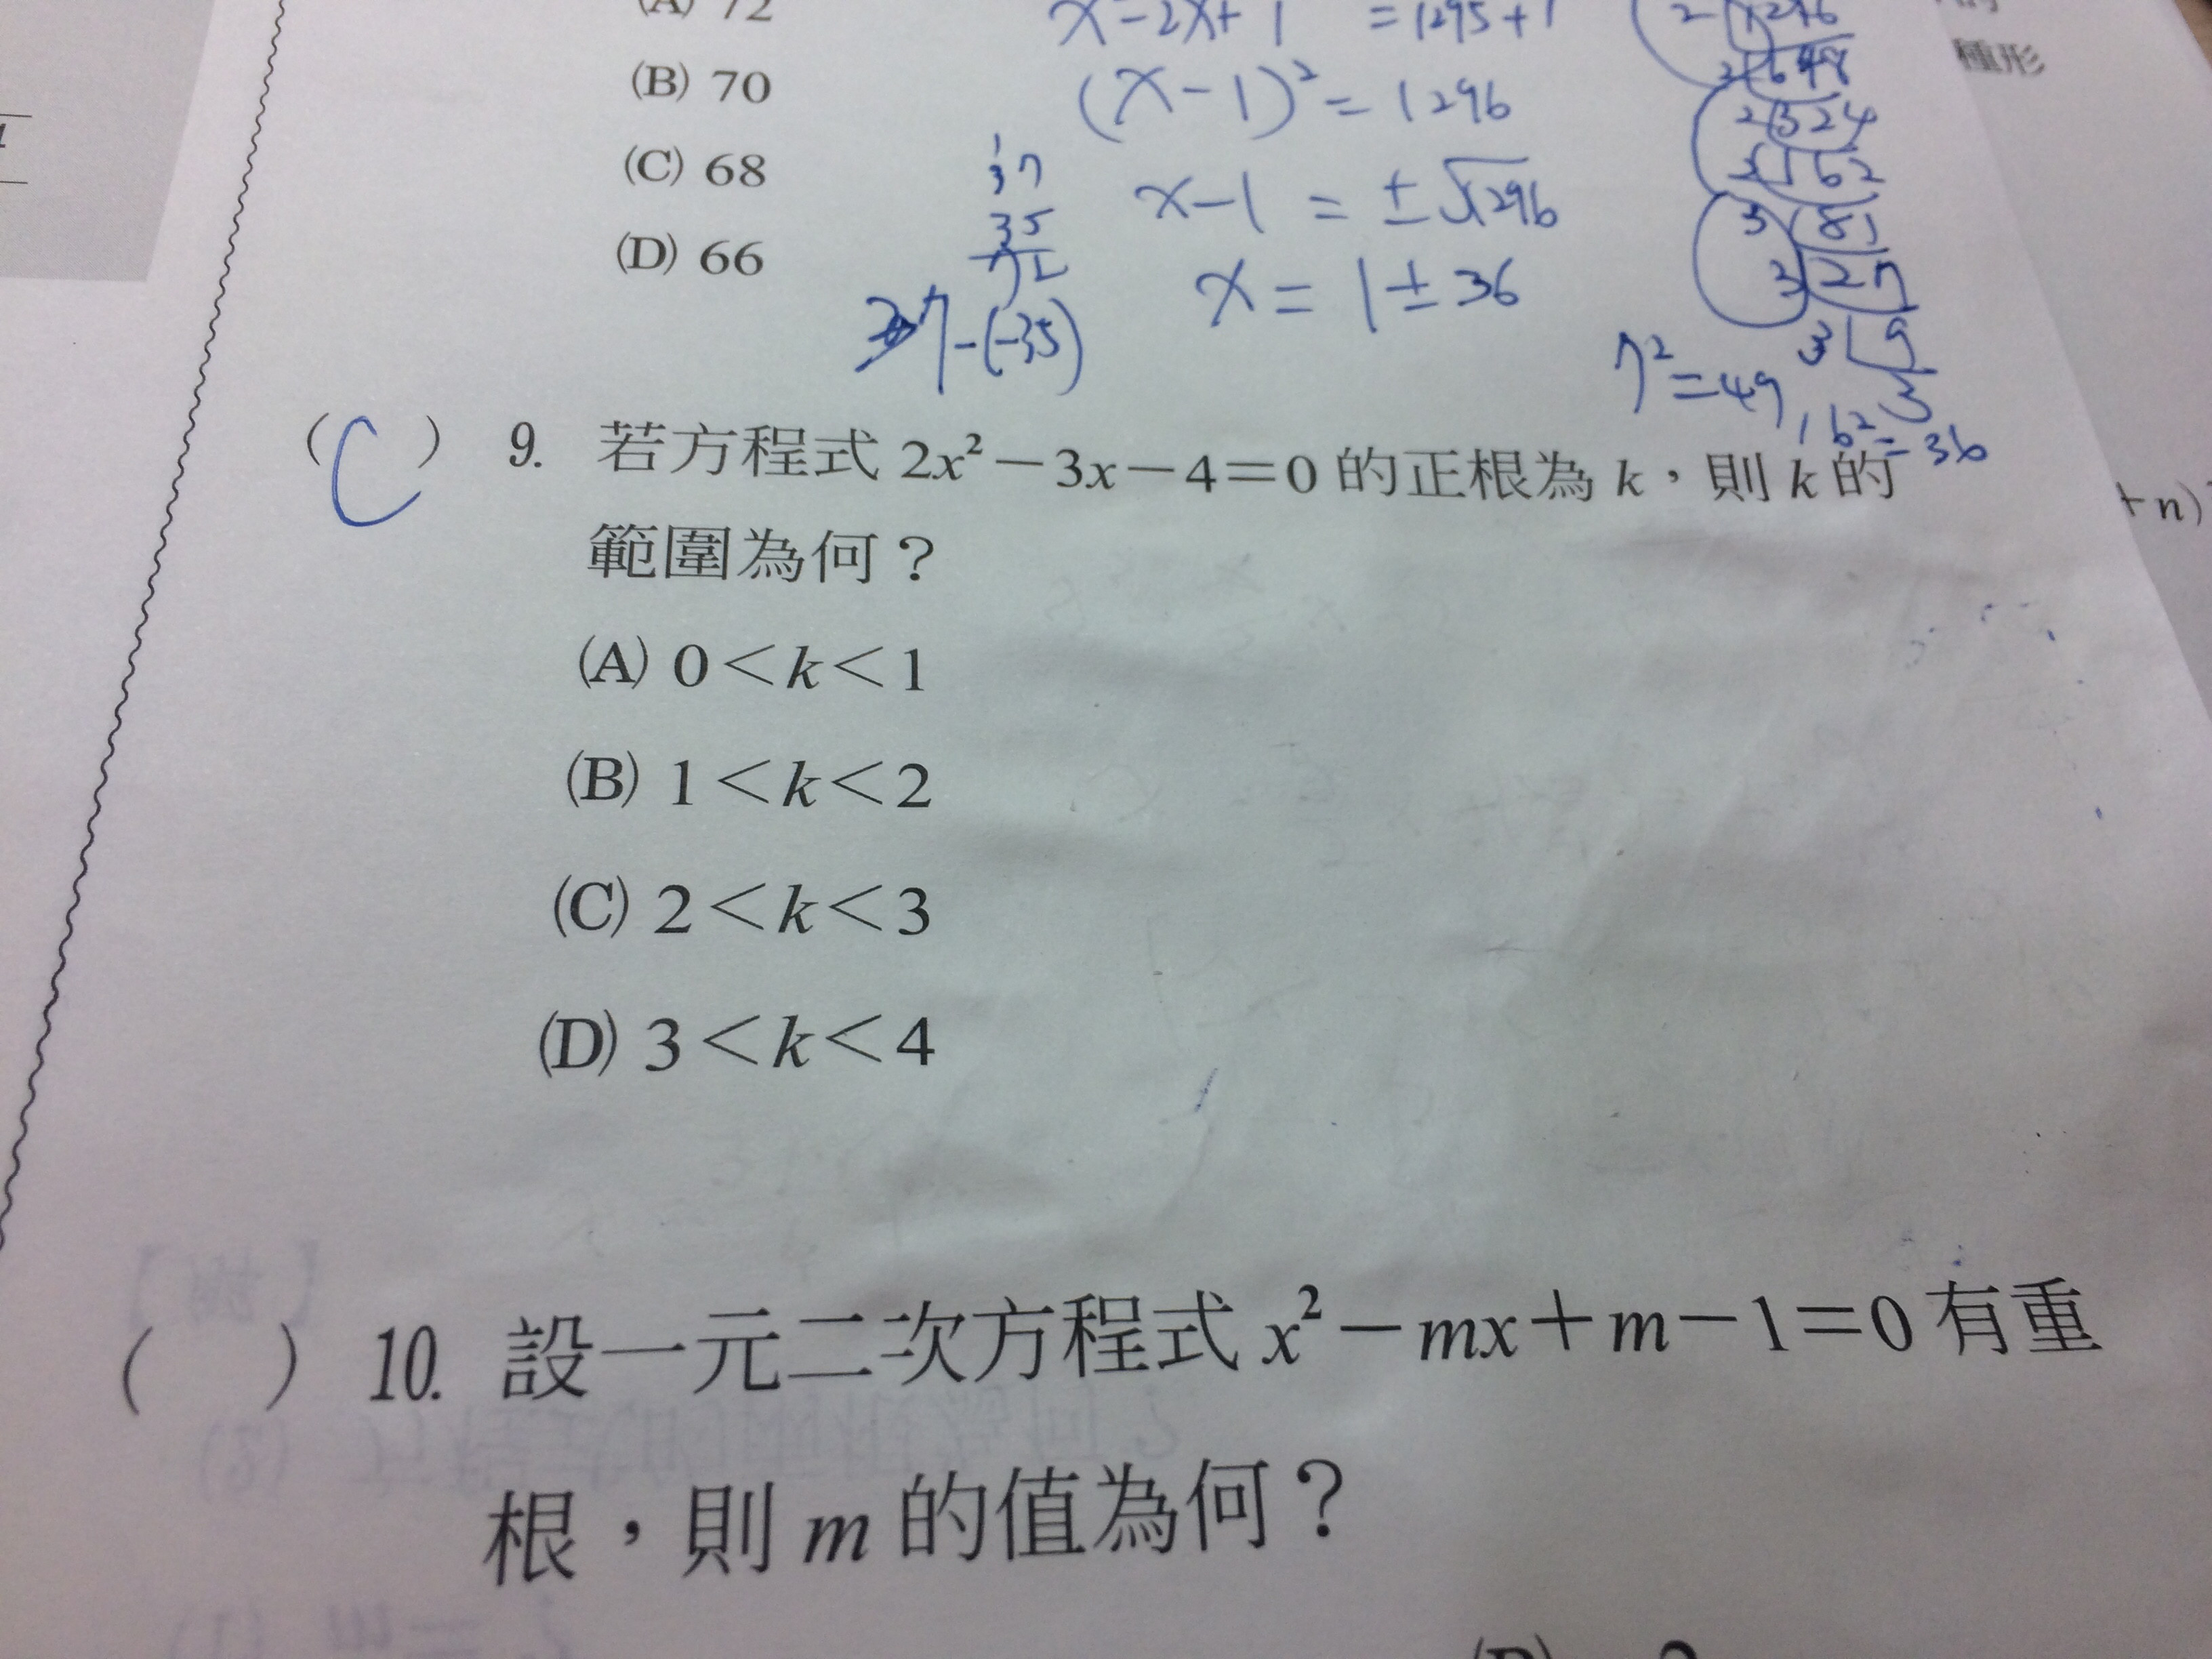 (A) 72
(B) 70
(C) 68
(D) 66
= 1295+1
(x-1)² = 1296
x-1 = ±√1296
x = 1±36
37
35
72
-(-35)
2 1296
2 648
2 324
2 162
3 81
3 27
3 9
3
7² = 49, 6² = 36
種形
+n)
(C) 9. 若方程式 2x²-3x-4=0 的正根為 k，則 k 的
範圍為何？
(A) 0<k<1
(B) 1<k<2
(C) 2<k<3
(D) 3<k<4
( ) 10. 設一元二次方程式 x²-mx+m-1=0 有重
根，則 m 的值為何？